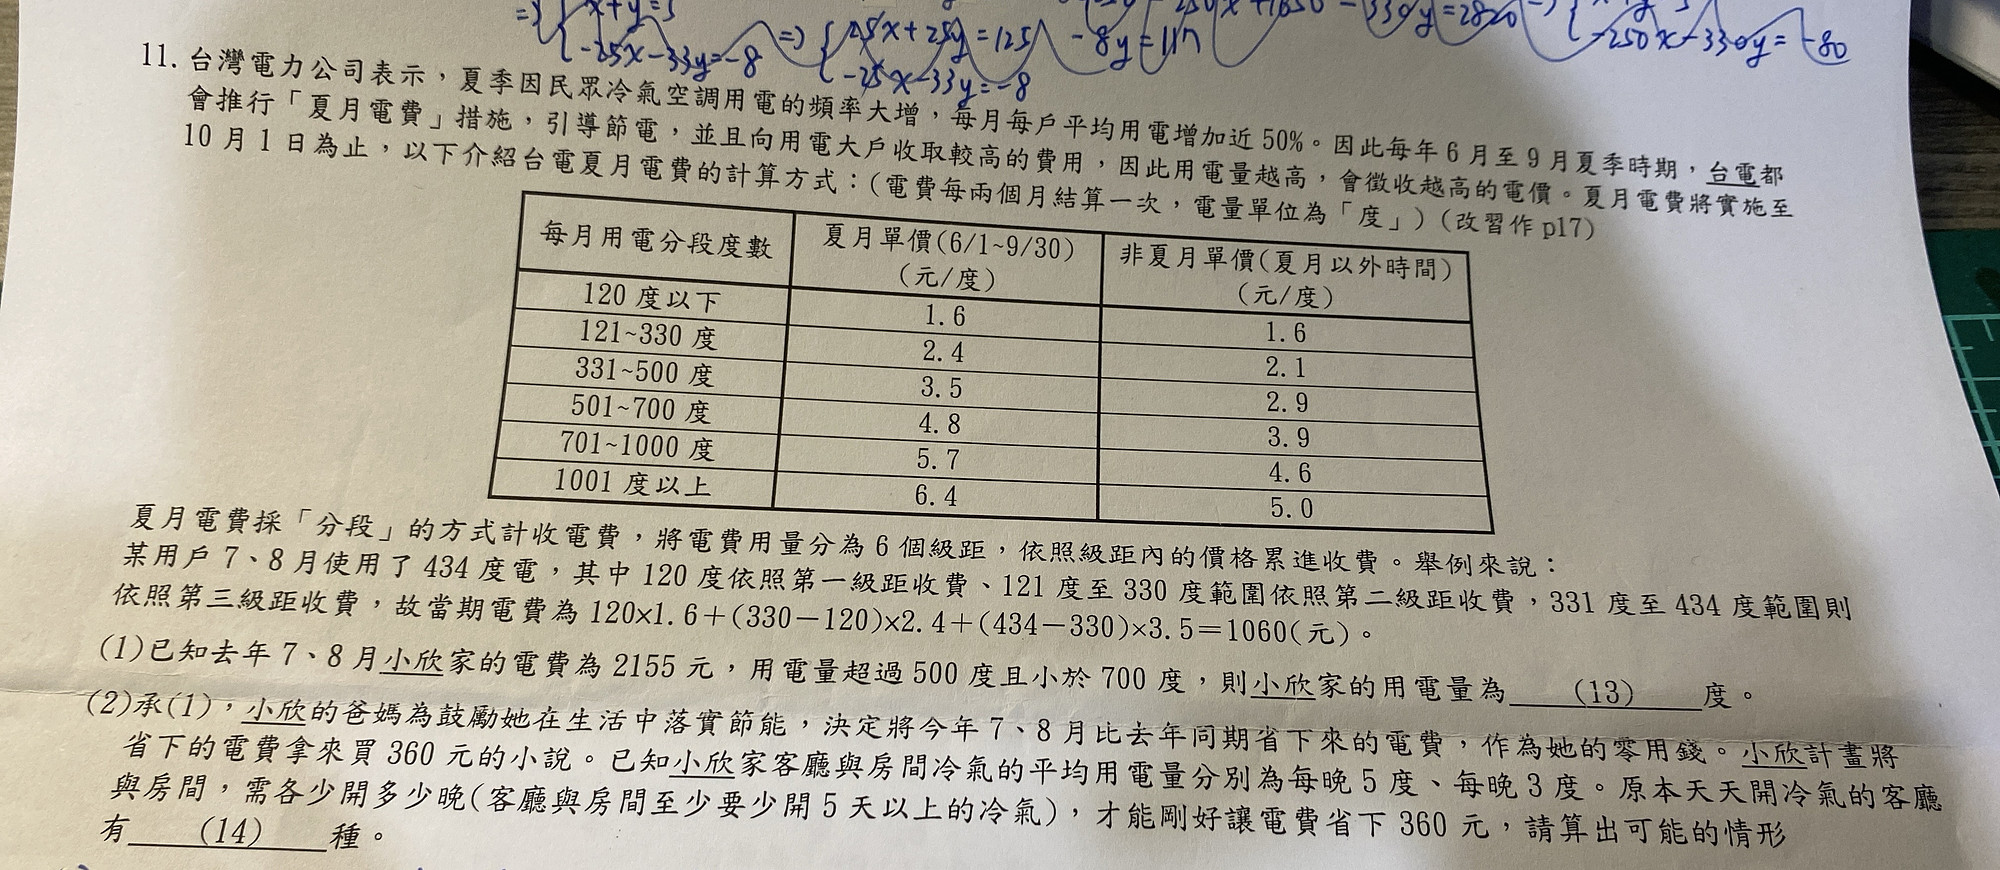 => { x+y=5
{ -25x-33y=-8 => { 25x+25y=125
-25x-33y=-8
-8y=117
-330y=2820
-250x-330y=-80
11. 台灣電力公司表示，夏季因民眾冷氣空調用電的頻率大增，每月每戶平均用電增加近 50%。因此每年 6 月至 9 月夏季時期，台電都
會推行「夏月電費」措施，引導節電，並且向用電大戶收取較高的費用，因此用電量越高，會徵收越高的電價。夏月電費將實施至
10 月 1 日為止，以下介紹台電夏月電費的計算方式：(電費每兩個月結算一次，電量單位為「度」) (改習作 p17)
每月用電分段度數 夏月單價(6/1~9/30) 非夏月單價(夏月以外時間)
(元/度) (元/度)
120 度以下 1.6 1.6
121~330 度 2.4 2.1
331~500 度 3.5 2.9
501~700 度 4.8 3.9
701~1000 度 5.7 4.6
1001 度以上 6.4 5.0
夏月電費採「分段」的方式計收電費，將電費用量分為 6 個級距，依照級距內的價格累進收費。舉例來說：
某用戶 7、8 月使用了 434 度電，其中 120 度依照第一級距收費、121 度至 330 度範圍依照第二級距收費，331 度至 434 度範圍則
依照第三級距收費，故當期電費為 120×1.6＋(330－120)×2.4＋(434－330)×3.5＝1060(元)。
(1)已知去年 7、8 月小欣家的電費為 2155 元，用電量超過 500 度且小於 700 度，則小欣家的用電量為 (13) 度。
(2)承(1)，小欣的爸媽為鼓勵她在生活中落實節能，決定將今年 7、8 月比去年同期省下來的電費，作為她的零用錢。小欣計畫將
省下的電費拿來買 360 元的小說。已知小欣家客廳與房間冷氣的平均用電量分別為每晚 5 度、每晚 3 度。原本天天開冷氣的客廳
與房間，需各少開多少晚(客廳與房間至少要少開 5 天以上的冷氣)，才能剛好讓電費省下 360 元，請算出可能的情形
有 (14) 種。